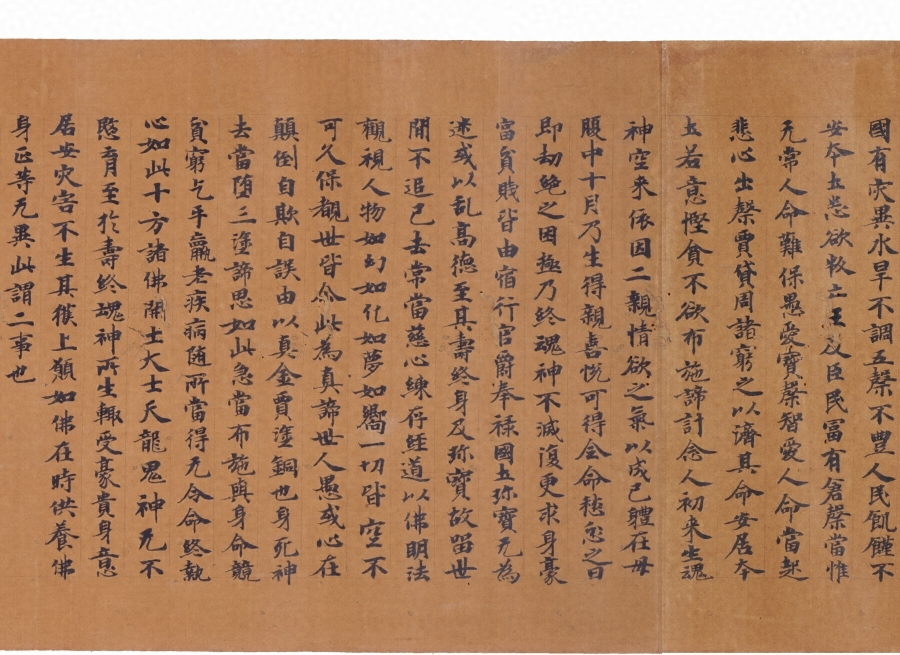 國有灾異水旱不調五槃不豐人民飢饉不
安本土忿欲教立王及臣民富有倉槃當惟
无常人命難保愚愛寶槃智愛人命當起
悲心出槃賈貸周諸窮之以濟其命安居本
土若意慳貪不欲布施諦計念人初来生魂
神空来依因二親情欲之氣以成己軆在母
腹中十月乃生得親喜恱可得全命愁忿之日
即劫絶之因極乃終魂神不滅復更求身豪
富貧賎皆由宿行官爵奉禄國土珎寶无為
迷或以乱高德至其壽終身及珎寶故留世
間不追己去常當慈心練存経道以佛明法
觀視人物如幻如化如夢如嚮一切皆空不
可久保觀世皆令此為真諦世人愚或心在
顛倒自欺自誤由以真金賈塗銅也身死神
去當堕三塗諦思如此急當布施與身命競
貧窮乞丐羸老疾病随所當得无令命終執
心如此十方諸佛開士大士天龍鬼神无不
愍育至扵壽終魂神所生輙受豪貴身意
居安灾害不生其獲上願如佛在時供養佛
身正等无異此謂二事也